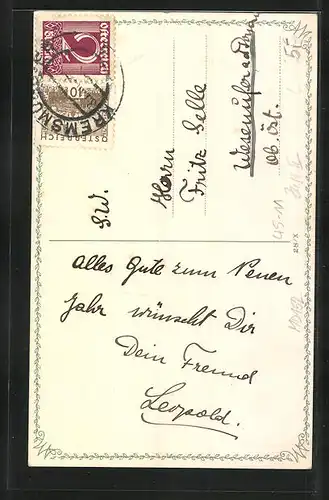 Österreich
2
ÖSTERREICH
KREMSMÜ
S.W.
Herrn
Fritz Selle
ob. öst.
5-
28/X
Alles Gute zum Neuen
Jahr wünscht Dir
Dein Freund
Leopold.